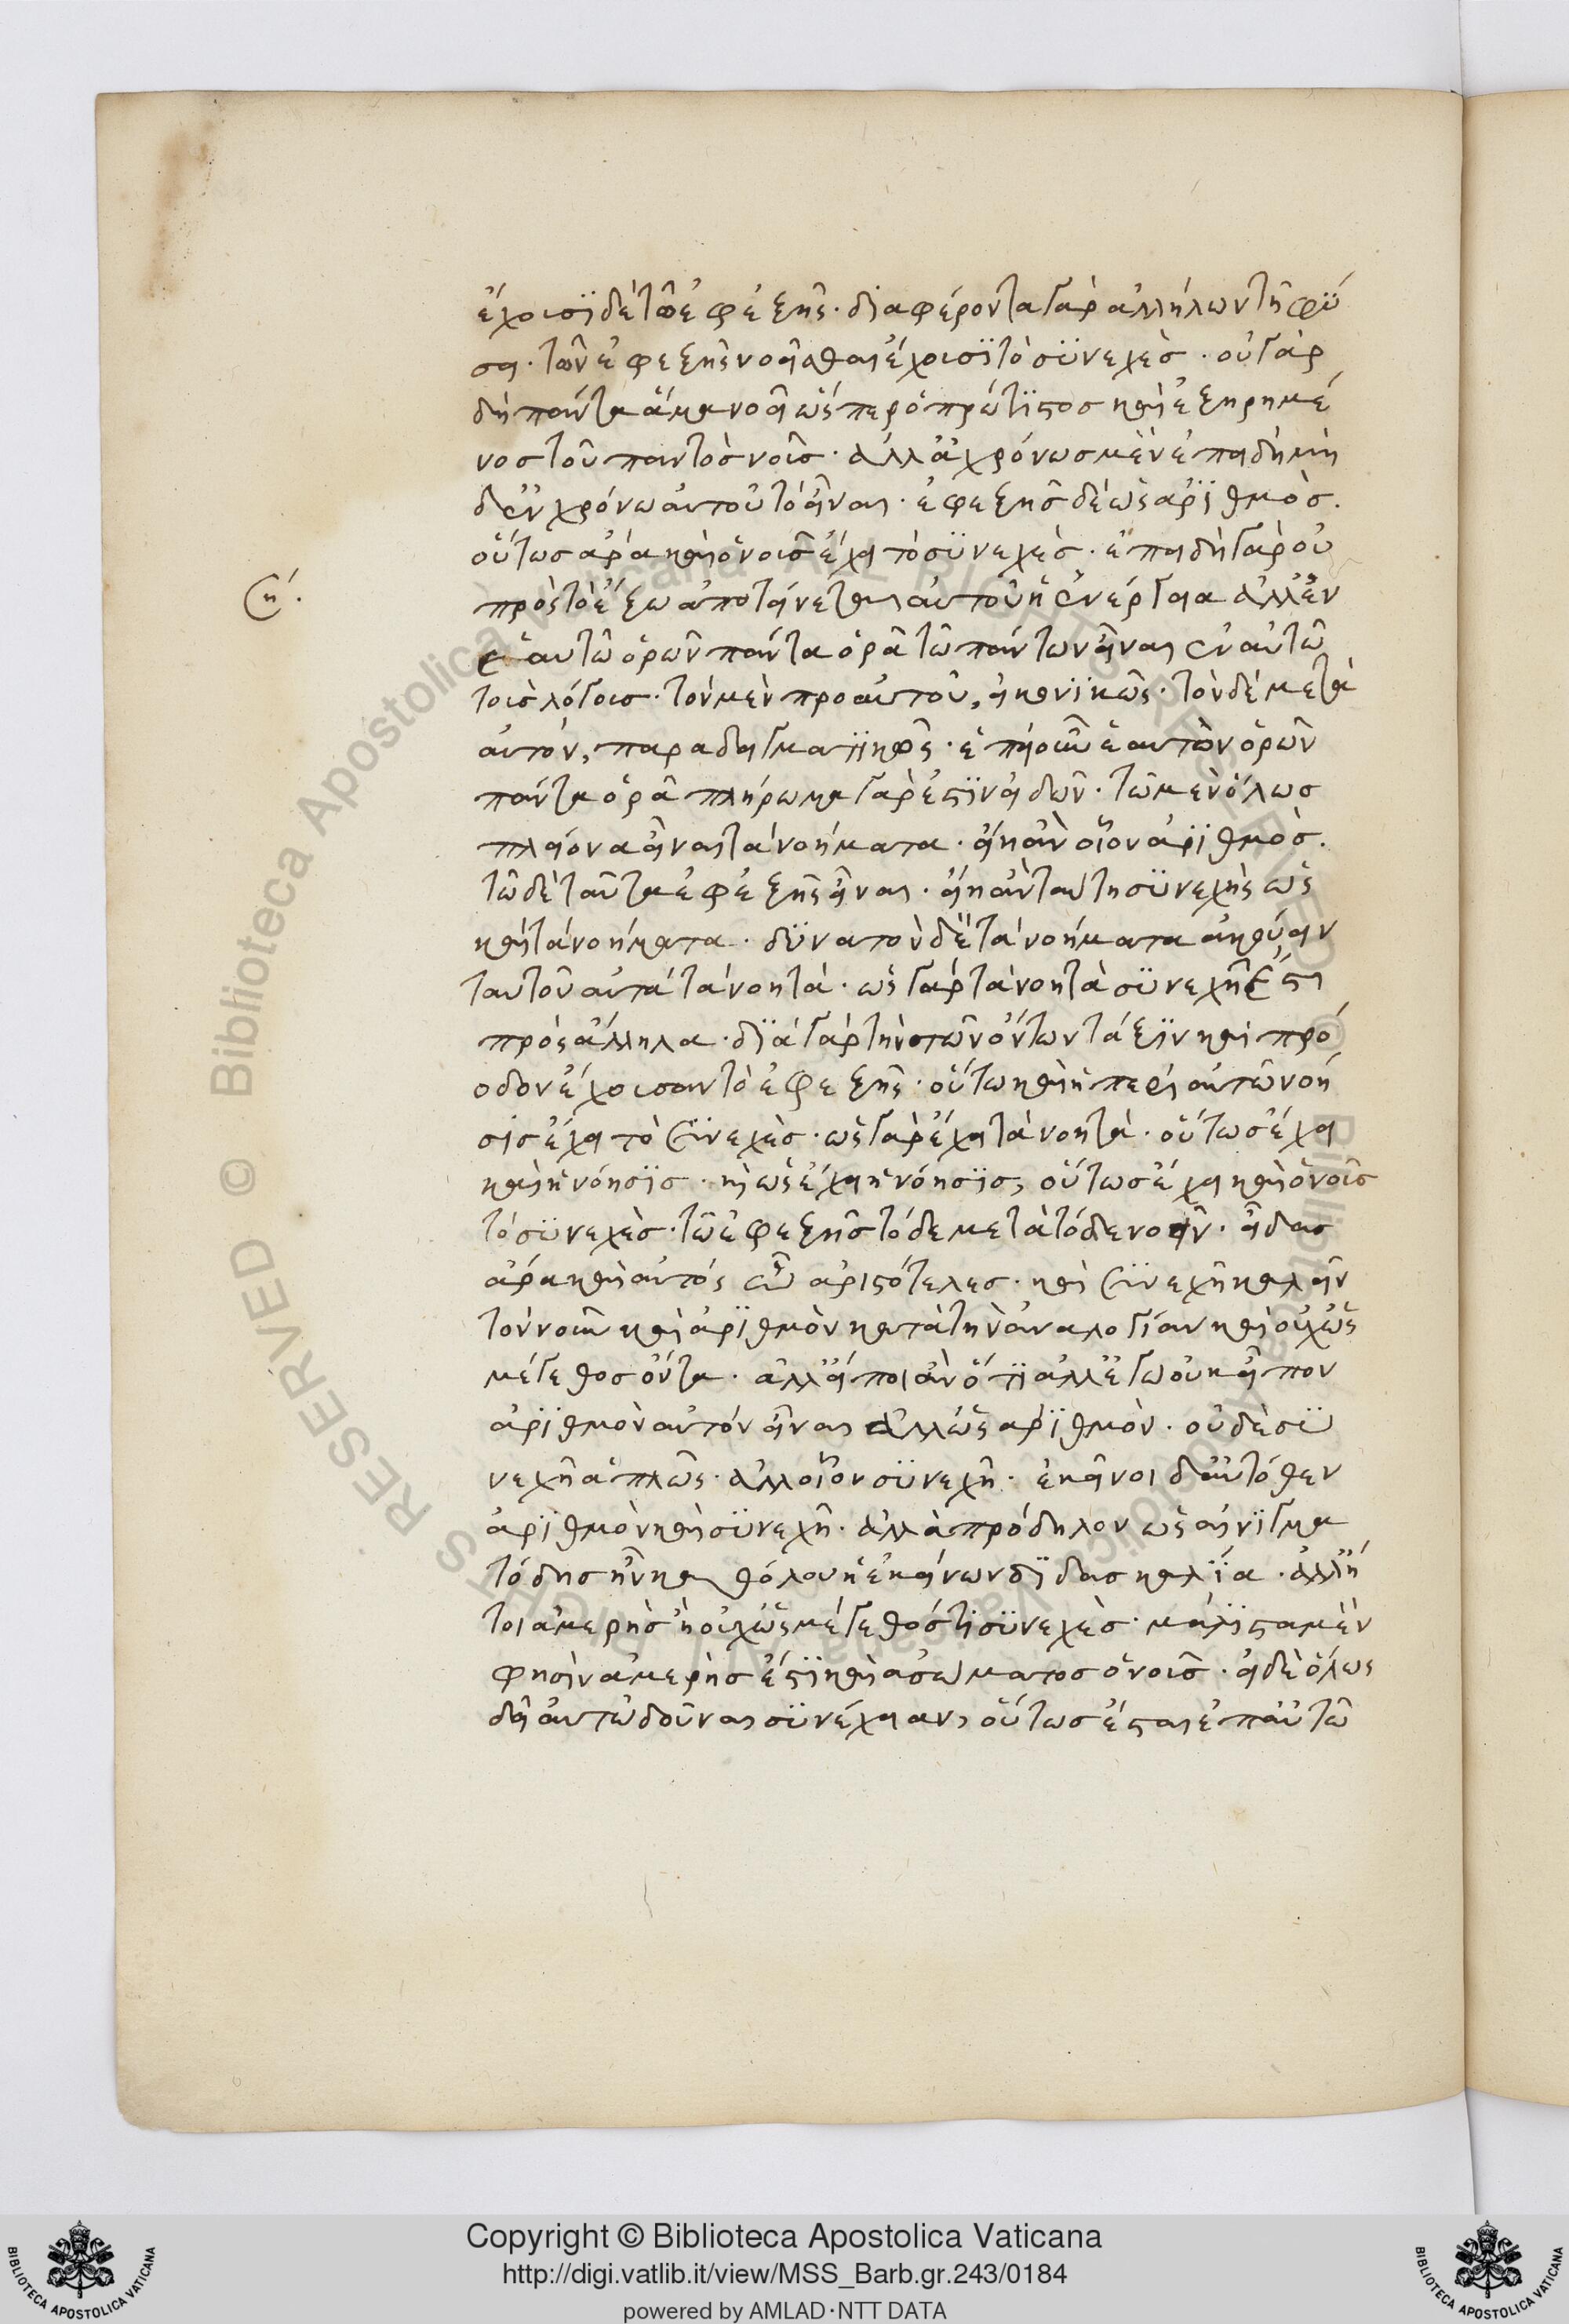 ἔχουσι δὲ τῶ ἐφεξῆς· διαφέροντα γὰρ ἀλλήλων τῆ φύ
σει· τῶν ἐφεξῆς νοεῖσθαι ἔχουσι τὸ συνεχὲς· οὐ γὰρ
δὴ πάντα ἅμα νοεῖ ὥσπερ ὁ πρώτιστος καὶ ἐξηρημέ
νος τοῦ παντὸς νοῦς· ἀλλὰ χρόνω μὲν ἐπειδὴ μὴ
δ' ἐν χρόνω αὐτοῦ τὸ εἶναι· ἐφεξῆς δὲ ὡς ἀριθμὸς.
οὕτως ἄρα καὶ ὁ νοῦς ἔχει τὸ συνεχὲς· ἐπειδὴ γὰρ οὐ
η΄.
πρὸς τὸ ἔξω ἀποτείνεται αὐτοῦ ἡ ἐνέργεια ἀλλ' ἐν
ἑαυτῶ ὁρῶν πάντα ὁρᾶ τῶ πάντων εἶναι ἐν αὐτῶ
τοὶς λόγοις· τὸν μὲν προ αὐτοῦ, εἰκονικῶς· τὸν δὲ μετὰ
αὐτὸν, παραδειγματικῶς· ἐπεὶ οὖν ἑαυτὸν ὁρῶν
πάντα ὁρᾶ πλήρωμα γὰρ ἐστὶν εἰδῶν· τῶ μὲν ὅλως
πλείονα εἶναι τὰ νοήματα· εἴη ἂν οἷον ἀριθμὸς.
τῶ δὲ ταῦτα ἐφεξῆς εἶναι· εἴη ἂν ταύτη συνεχὴς ὡς
καὶ τὰ νοήματα· δυνατὸν δὲ τὰ νοήματα ἀκούειν
ταυτοῦ αὐτὰ τὰ νοητὰ· ὡς γὰρ τὰ νοητὰ συνεχῆ ἐστι
πρὸς ἄλληλα· διὰ γὰρ τὴν τῶν ὄντων τάξιν καὶ πρό
οδον ἔχουσαν τὸ ἐφεξῆς· οὕτω καὶ ἡ περὶ αὐτῶν νοή
σις ἔχει τὸ συνεχὲς· ὡς γὰρ ἔχει τὰ νοητὰ· οὕτως ἔχει
καὶ ἡ νόησις· κὶ ὡς ἔχει ἡ νόησις, οὕτως ἔχει καὶ ὁ νοῦς
τὸ συνεχὲς· τῶ ἐφεξῆς τόδε μετὰ τόδε νοεῖν· εἶδας
ἄρα καὶ αὐτός ὦ ἀριστότελες· καὶ συνεχῆ καλεῖν
τὸν νοῦν καὶ ἀριθμὸν κατὰ τὴν ἀναλογίαν καὶ οὐχ ὡς
μέγεθος ὄντα· ἀλλ' εἴποι ἂν ὅτι ἀλλ' ἐγὼ οὐκ εἶπον
ἀριθμὸν αὐτὸν εἶναι ἀλλ' ὡς ἀριθμὸν· οὐδὲ συ
νεχῆ ἁπλῶς· ἀλλ' οἷον συνεχῆ· ἐκεῖνοι δ' αὐτόθεν
ἀριθμὸν καὶ συνεχῆ· ἀλλὰ πρόδηλον ὡς αἴνιγμα
τόδης ἦν καθόλου ἡ ἐκείνων διδασκαλία· ἀλλ' ἤ
τοι ἀμερὴς ἢ οὐχ ὡς μέγεθός τι συνεχὲς· μάλιστα μὲν
φησὶν ἀμερὴς ἐστὶ καὶ ἀσώματος ὁ νοῦς· εἰ δὲ ὅλως
δεῖ αὐτῶ δοῦναι συνέχειαν, οὕτως ἔσται ἐπ' αὐτῶ
Copyright © Biblioteca Apostolica Vaticana
http://digi.vatlib.it/view/MSS_Barb.gr.243/0184
powered by AMLAD·NTT DATA